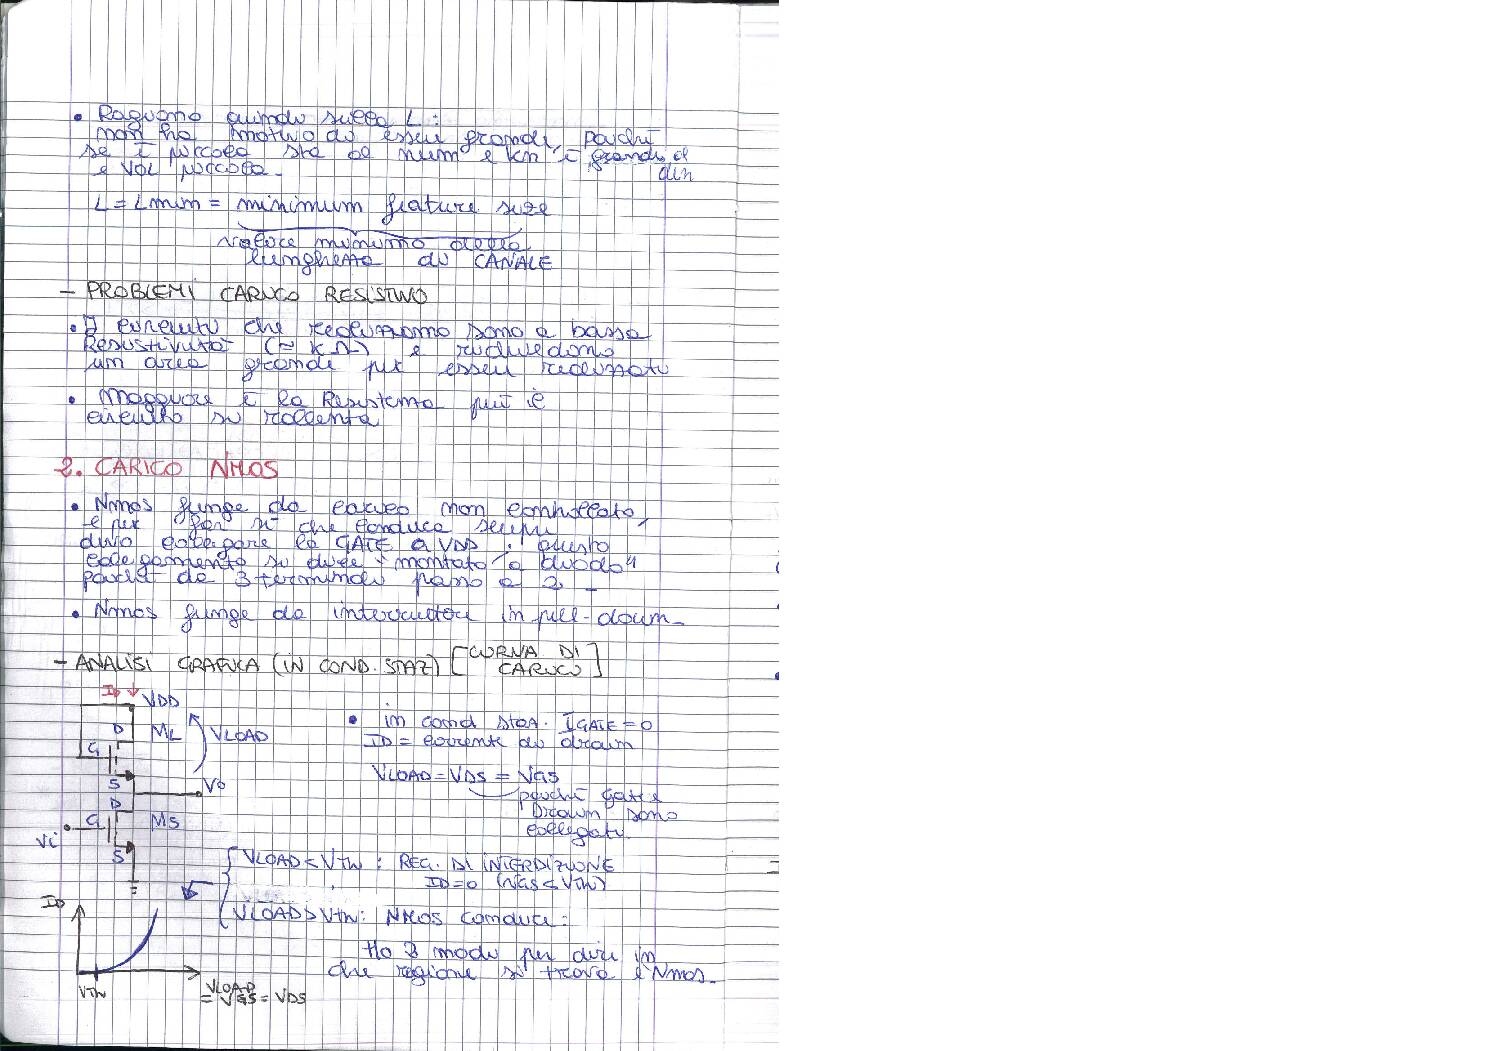 • Ragiono quindi sulla L :
non ha motivo di essere grande, poiché
se è piccola sta al num e kn è grande, al
e VOL piccola. den
L = Lmin = minimum feature size
valore minimo della
lunghezza di CANALE
- PROBLEMI CARICO RESISTIVO
• I circuiti che realizziamo sono a bassa
Resistività (≈ kΩ) e richiedono
un area grande per essere realizzati
• Maggiore è la Resistenza più il
circuito si rallenta
2. CARICO NMOS
• Nmos funge da carico non controllato,
e per far sì che conduca sempre
devo collegare la GATE a VDD ; questo
collegamento si dice "montato a diodo"
poiché da 3 terminali passo a 2 -
• Nmos funge da interruttore in pull-down -
- ANALISI GRAFICA (IN COND. STAZ) [CURVA DI
CARICO]
ID ↓ VDD
D ML VLOAD
G
S
Vo
D
G MS
Vi
S
• in cond staz. IGATE = 0
ID = corrente di drain
VLOAD = VDS = VGS
poiché gate e
Drain sono
collegati.
VLOAD < VTN : REG. DI INTERDIZIONE
ID = 0 (VGS < VTN)
VLOAD > VTN : NMOS conduce :
Ho 2 modi per dire in
che regione si trova l'Nmos.
ID
VTN
VLOAD
= VGS = VDS